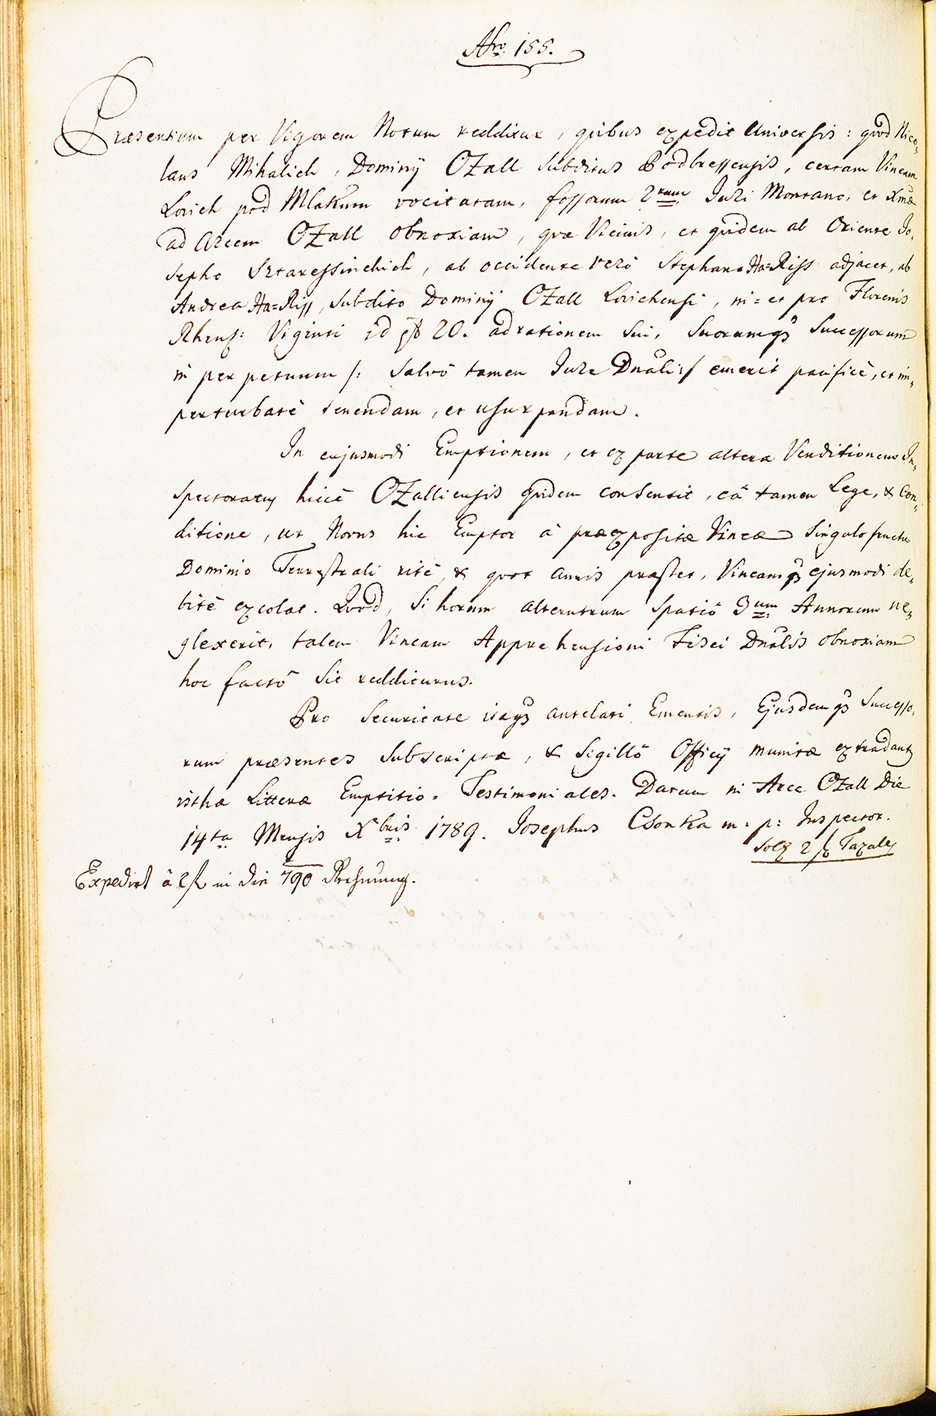 Nro. 155.
Præsentium per Vigorem Notum redditur, quibus expedit Universis: quod Nico-
laus Mihalich, Dominÿ OZall Subditus Podbressensis, certam Vineam
Lovich pod Mlakum vocitatam, fossorum 2rum Juri Montano, et Xmæ
ad Arcem OZall obnoxiam, quæ Vicinis, et quidem ab Oriente Jo-
sepho Sztaressinchich, ab occidente verò Stephano Ha=Riss adjacet, ab
Andrea Ha=Riss, Subdito Dominÿ OZall Lovichensi, in= et pro Florenis
Rhens: Viginti id est 20. ad rationem sui, Suorumq3 Successorum
in perpetuum /: Salvô tamen Jure Dnali :/ emerit pacificè, et im-
perturbatè tenendam, et usurpandam.
In ejusmodi Emptionem, et ex parte altera Venditionem In-
spectoratus hicce OZalliensis quidem consensit, eâ tamen Lege, & Con-
ditione, ut Novus hic Emptor à præexposita Vinea Singulo fructu
Dominio Terrestrali ritè, & quot annis præstet, Vineamq3 ejusmodi de-
bitè excolat. Quod, Si horum alterutrum Spatiô 3um Annorum ne-
glexerit, talem Vineam Apprehensioni Fisci Dnalis obnoxiam
hoc factô Sic redditurus.
Pro Securitate itaq3 antelati Ementis, Ejusdemq3 Successo-
rum præsentes Subscriptæ, & Sigillô Officÿ munitæ extradantur
isthæ Litteræ Emptitio-Testimoniales. Datum in Arce OZall Die
14ta Mensis Xbris 1789. Josephus CsonKa m. p: Inspector.
Solv 2 f Taxales
Expedirt à 2f in der 790 Rechnung.